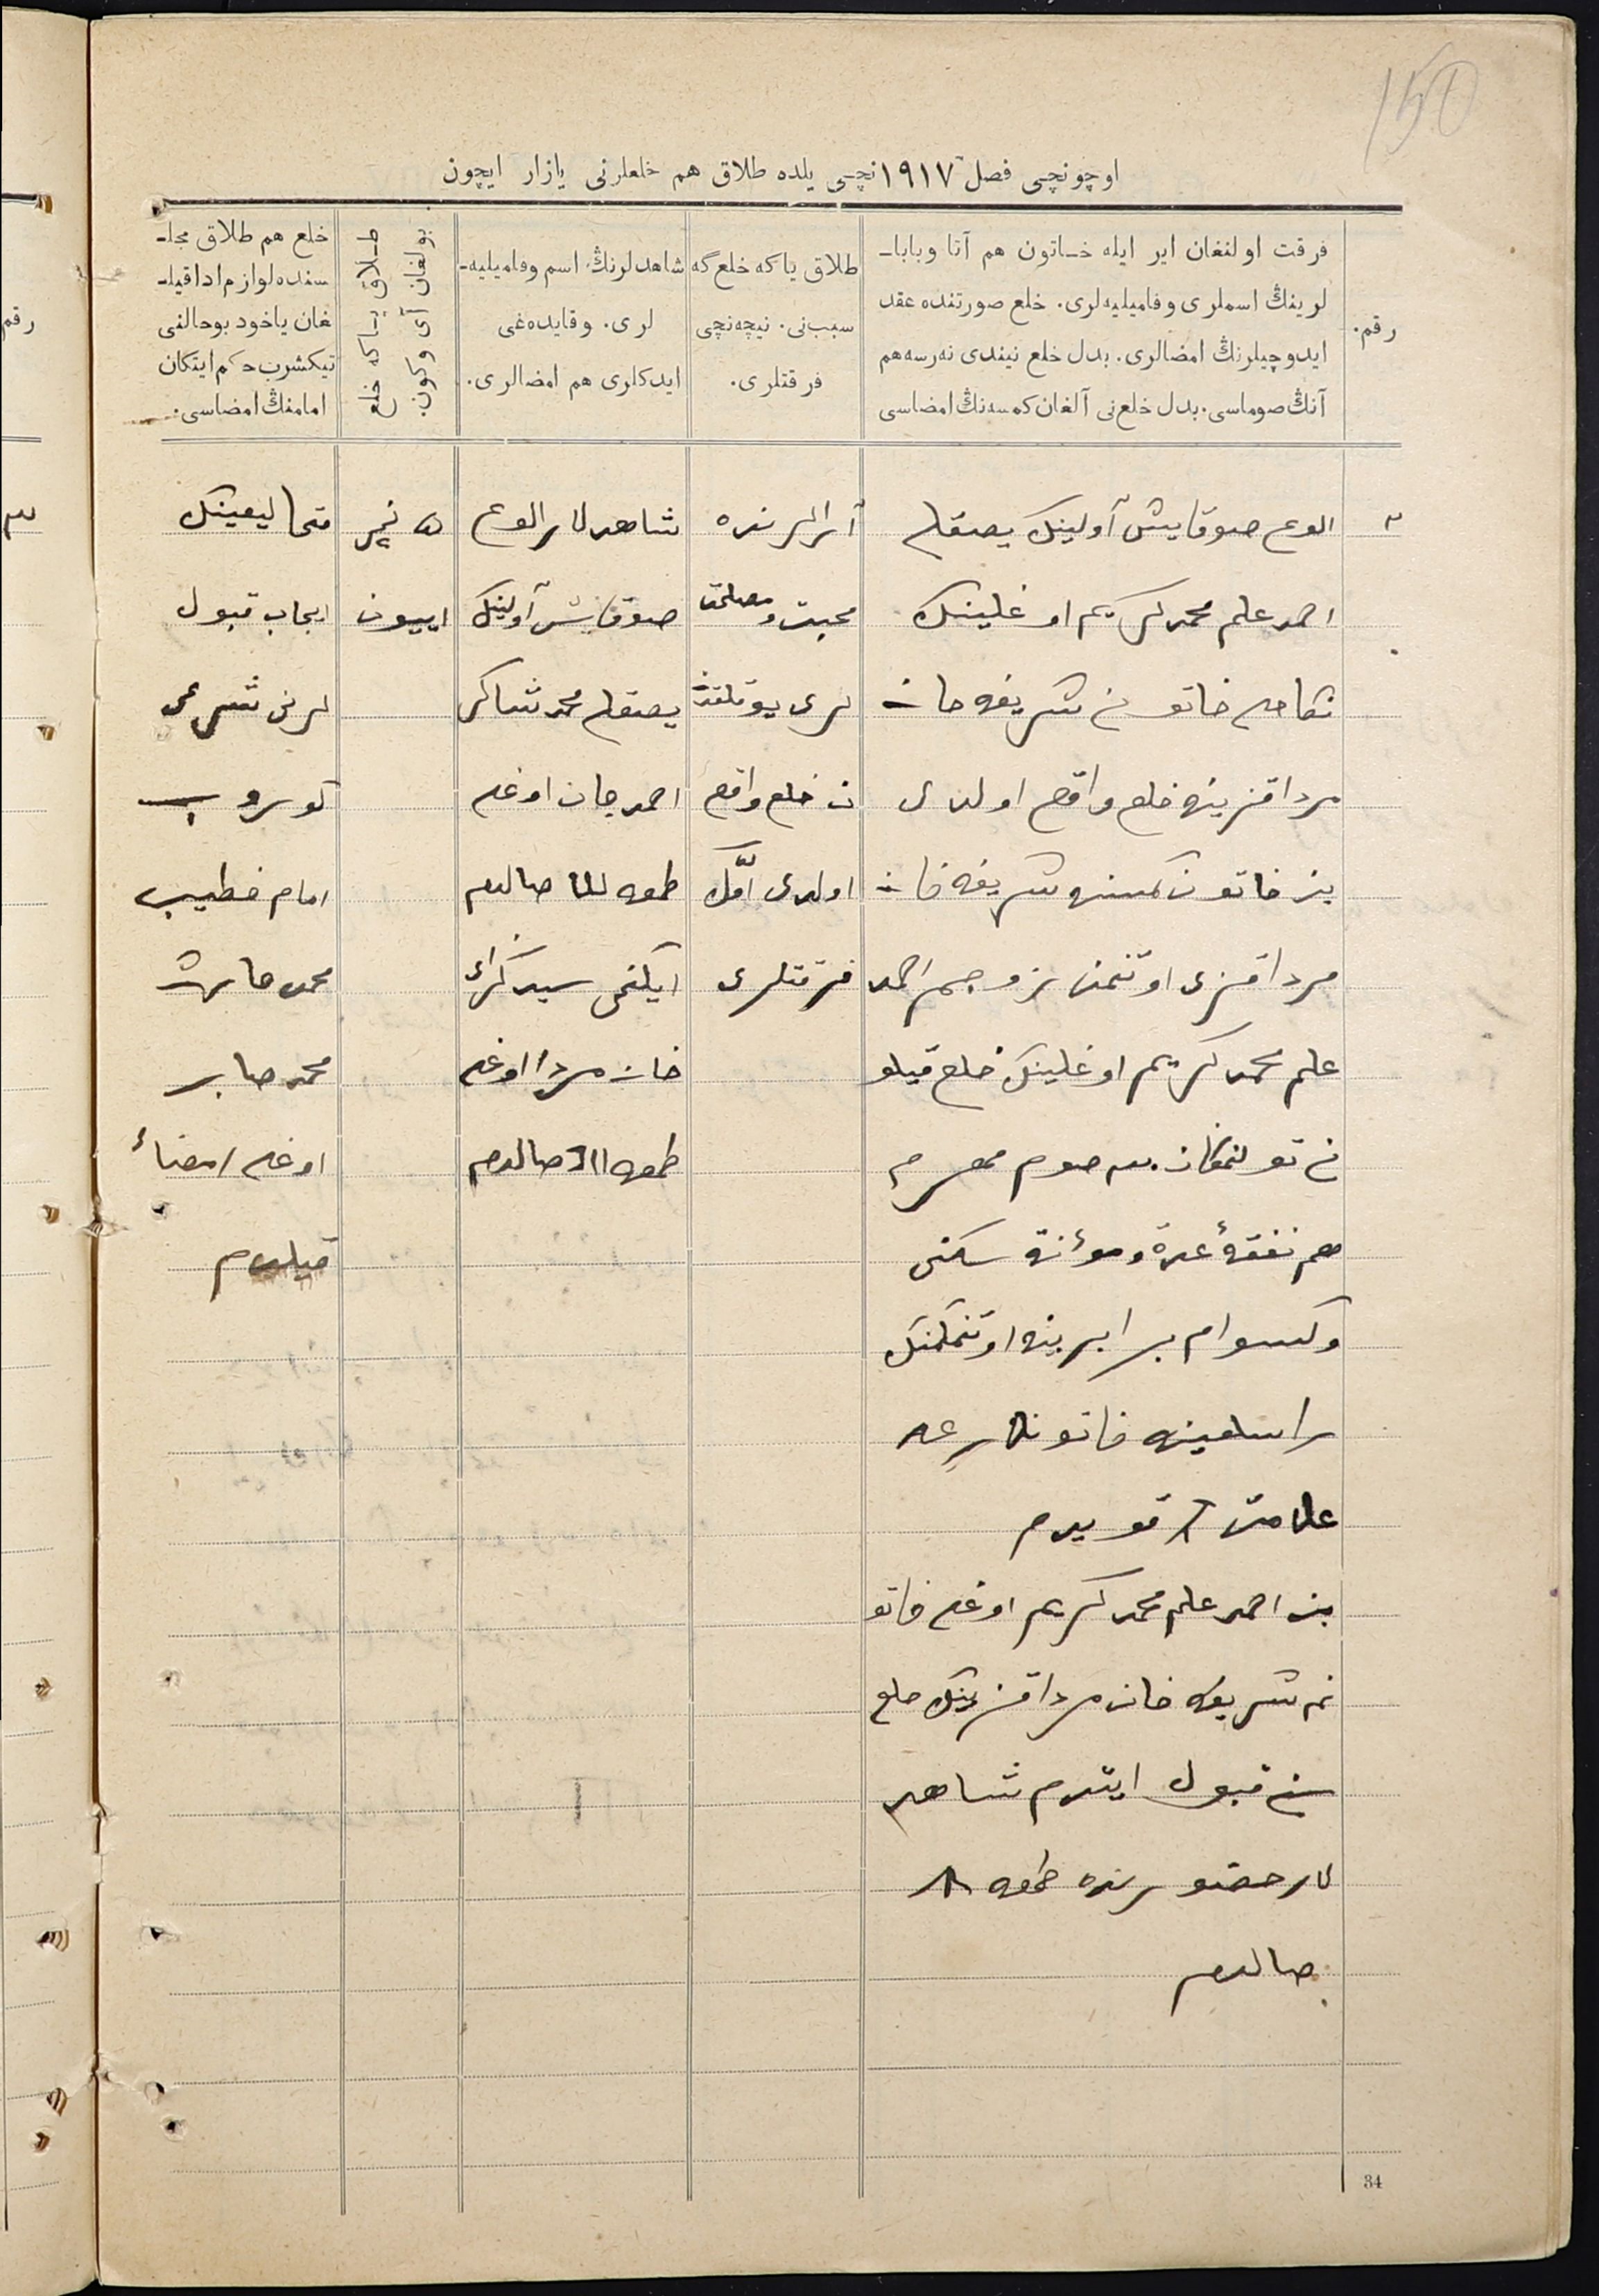 150
اوچونچی فصل ١٩١٧نچی یلده طلاق هم خلعلرنی یازار ایچون
رقم.
فرقت اولنغان ایر ایله خاتون هم آتا وبابا-
لرینڭ اسملری وفامیلیه‌لری. خلع صورتنده عقد
ایدوچیلرنڭ امضالری. بدل خلع نیندی نه‌رسه هم
آنڭ صوماسی. بدل خلع‌نی آلغان کمسه‌نڭ امضاسی
طلاق یا که خلع گه
سبب‌نی. نیچه‌نچی
فرقتلری.
شاهدلرنڭ اسم وفامیلیه-
لری. وقایده‌غی
ایدکلری هم امضالری.
طلاق یا که خلع
بولغان آی وکون.
خلع هم طلاق مجلـ
سنده لوازم ادا قیلـ
غان یاخود بوحالنی
تیکشرب حکم ایتکان
امامنڭ امضاسی.
٢
الوغ صوقایش آولینک یصقلی
احمد علم محمد کریم اوغلینک
نکاحلی خاتونی شریفه جان
مرداقزینه خلع واقع اولدی
بز خاتون کمسنه شریفه خان
مرداقزی اوتنمن زوجم احمد
علم محمد کریم اوغلینک خلع قیلو
ن تولنمکان صوم مهرم
هم نفقهٔ عدة ومؤنة سکنی
وکسوام برابرینه اوتنمکمنک
راسلغینه خاتونلارغه
علامتی قویدم
بز احمد علم محمد کریم اوغلی خاتو
نم شریفه خان مرداقزینک خلع
نی قبول ایتدم شاهد
لار حضورنده طمغه
صالدم
آرالرنده
محبت و مصلحت
لری یوقلقد
ن خلع واقع
اولدی اوّلک
فرقتلری
شاهدلار الوغ
صوقایش آولینک
یصقلی محمد شاکر
احمدجان اوغلی
طمغه صالدم
ایکنچی سیدکرای
خان مردا اوغلی
طمغه III صالدم
٥ نچی
اییون
متحا لیعینک
ایجاب قبول
لرنی شرعی
کوروب
امام خطیب
محمد حارث
محمد صابر
اوغلی امضاء
قیلدم
34
رقم
٣